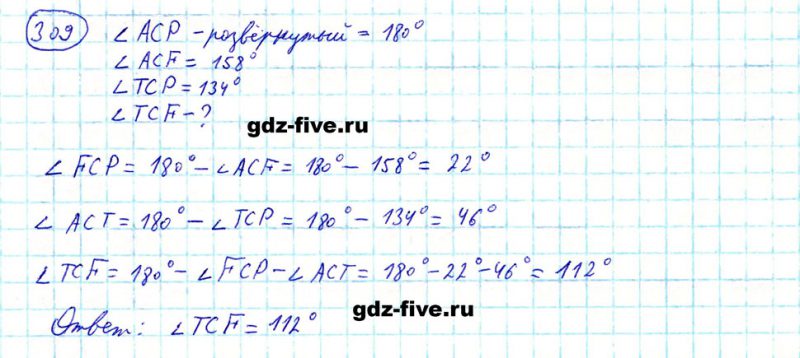 309 ∠ACP - развёрнутый = 180°
∠ACF = 158°
∠TCP = 134°
∠TCF - ?
gdz-five.ru
∠FCP = 180° - ∠ACF = 180° - 158° = 22°
∠ACT = 180° - ∠TCP = 180° - 134° = 46°
∠TCF = 180° - ∠FCP - ∠ACT = 180° - 22° - 46° = 112°
gdz-five.ru
Ответ: ∠TCF = 112°